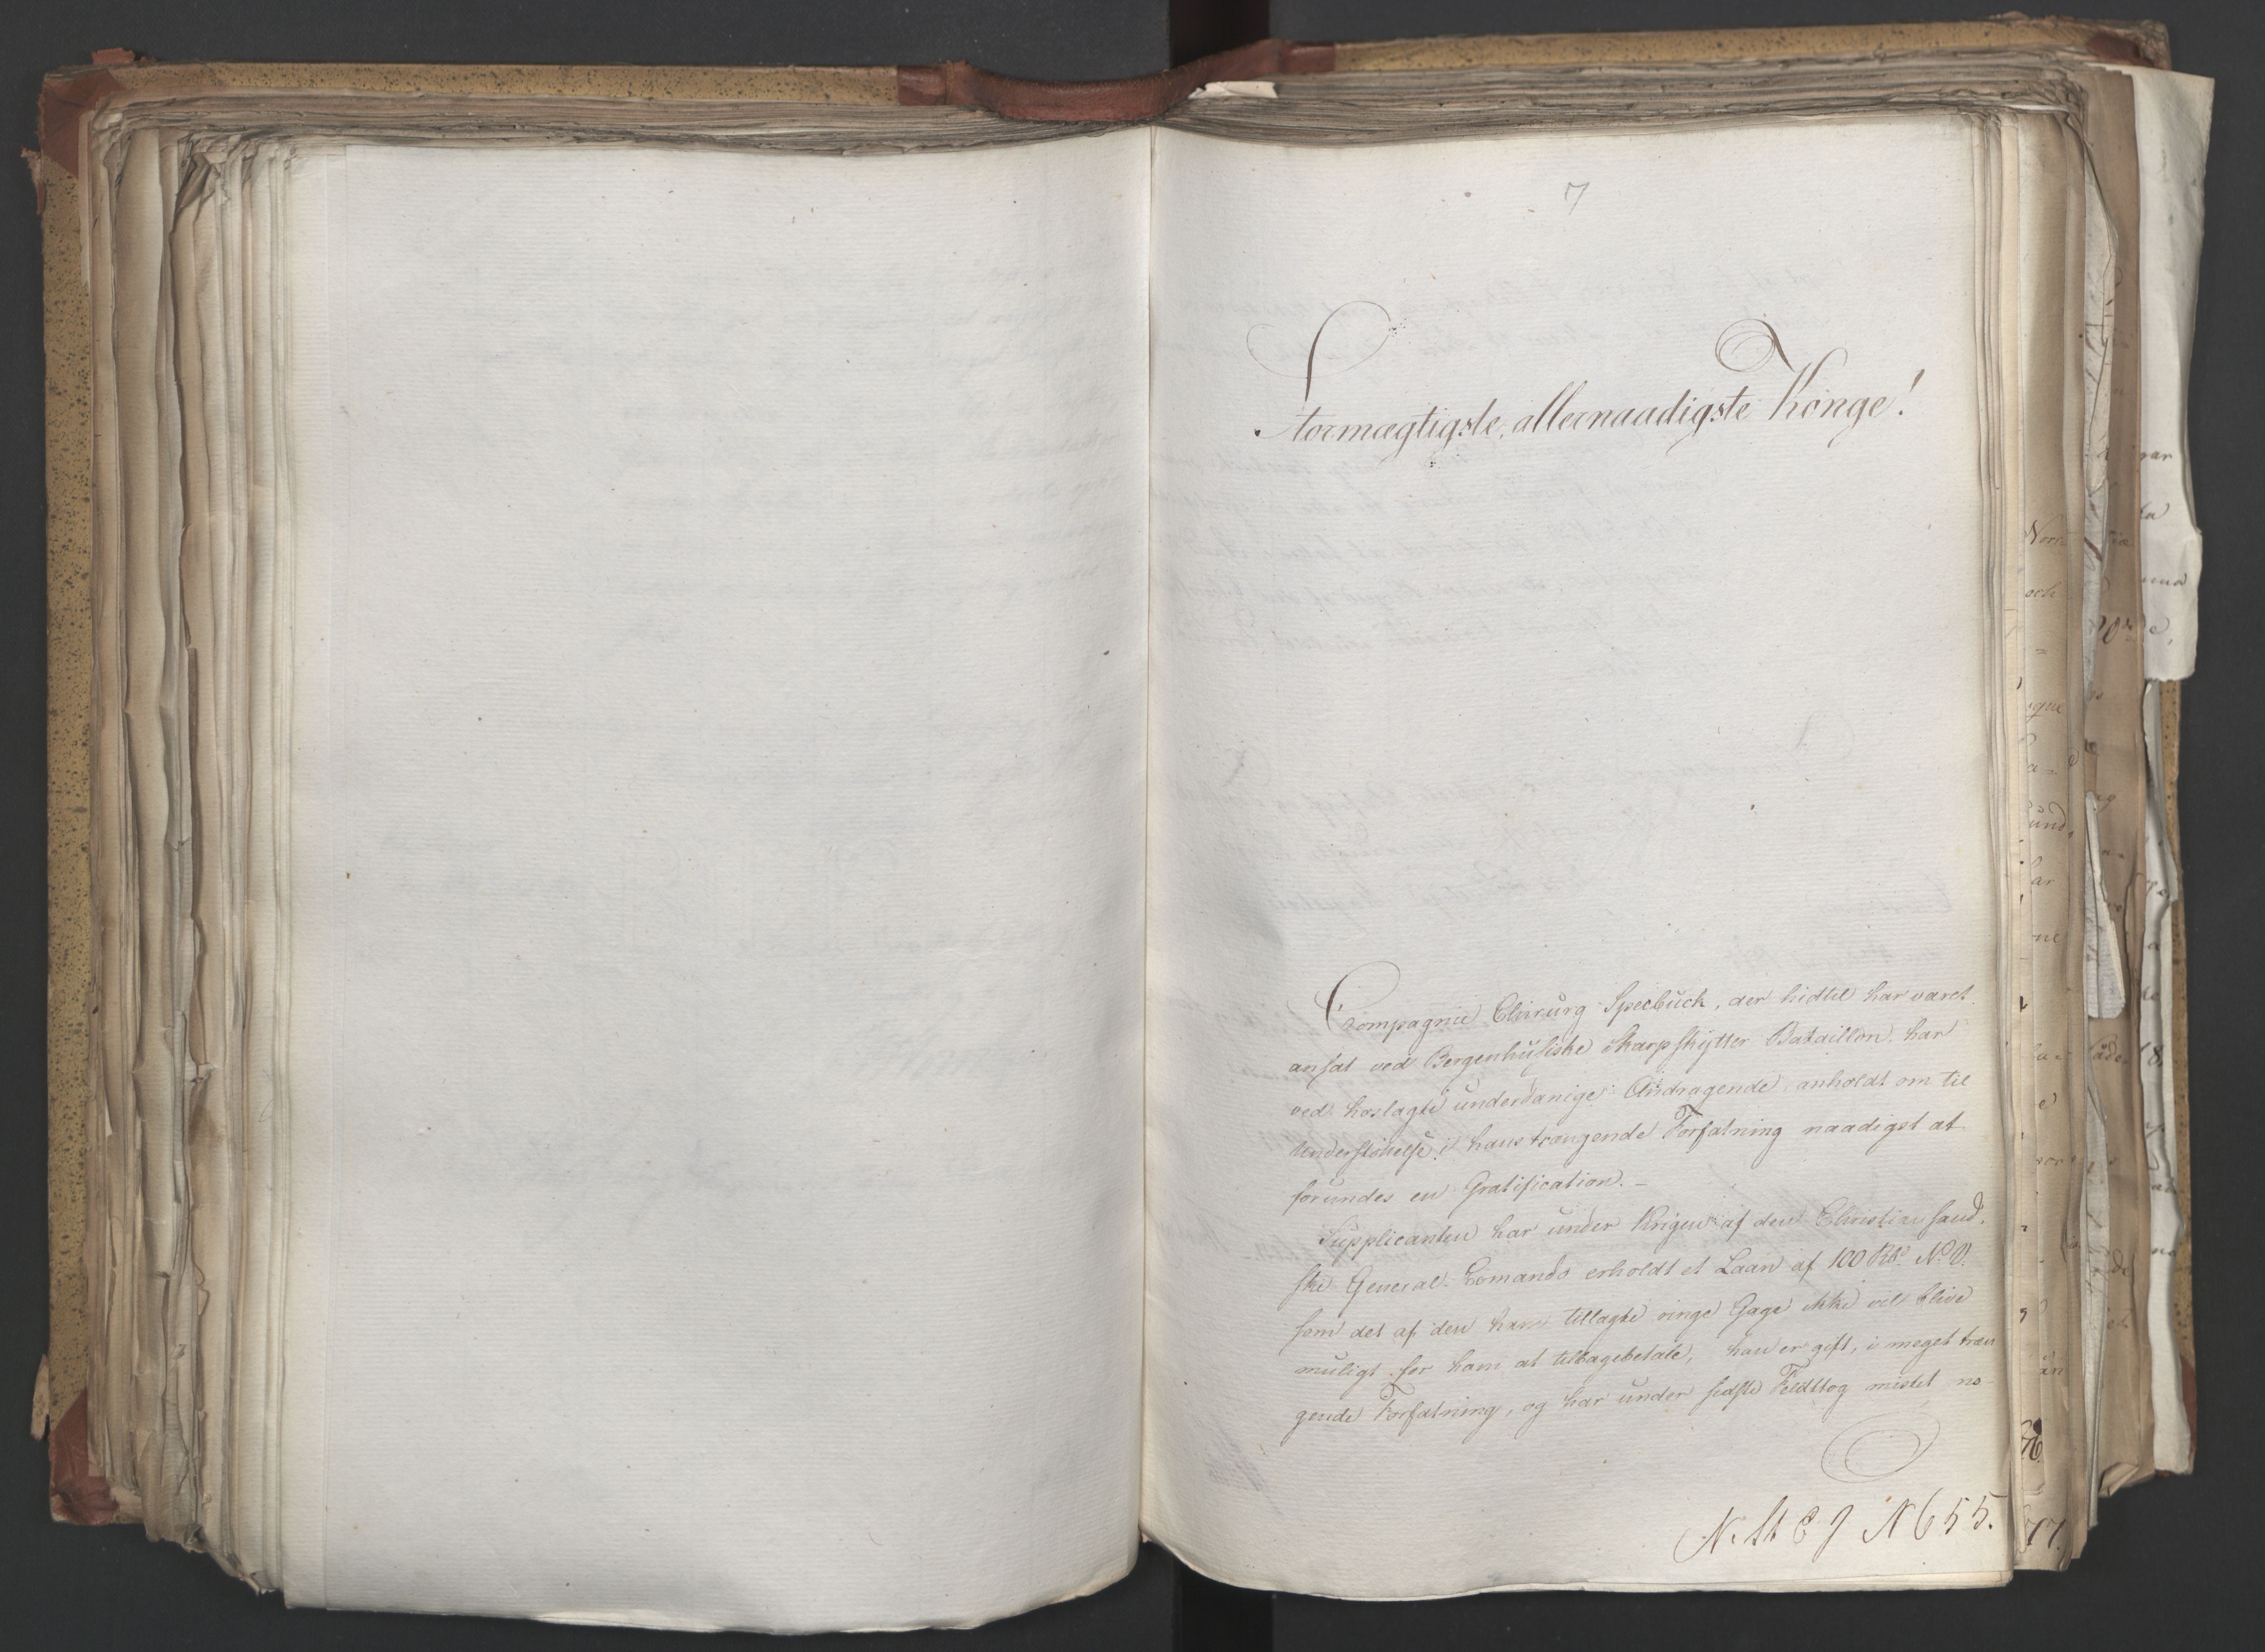 7
Stormægtigste, allernaadigste Konge!
Compagnie Chirurg Specbuck, der hidtil har været
ansat ved Bergenhusiske Skarpskytter Bataillon, har
ved hoslagte underdanige Andragende anholdt om til
Understøttelse i hans trængende Forfatning naadigst at
forundes en Gratification. –
Supplicanten har under Krigen af den Christiansand-
ske General-Comando erholdt et Laan af 100 Rd. N.V.
som det af den ham tillagte ringe Gage ikke vil blive
muligt for ham at tilbagebetale, han er gift, i meget træn
gende Forfatning, og har under sidste Feldttog mistet no-
N. St C J N 655.
77.